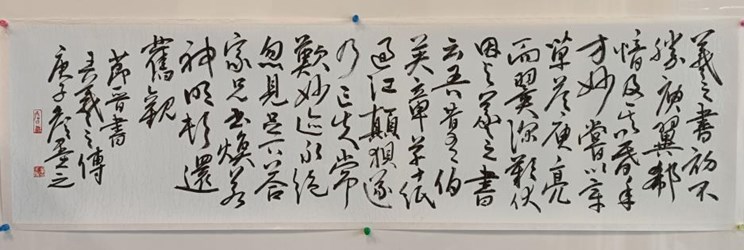 羲之書初不
勝庾翼郗
愔及其暮年
方妙嘗以章
草答庾亮
而翼深歎伏
因與羲之書
云吾昔有伯
英章草十紙
過江顛狽遂
乃亡失常
歎妙迹永絕
忽見足下答
家兄書煥若
神明頓還
舊觀
節晉書
王羲之傳
庚子